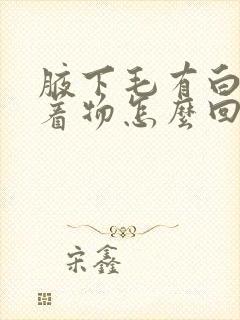 腋下毛有白
着物怎麼回
宋鑫